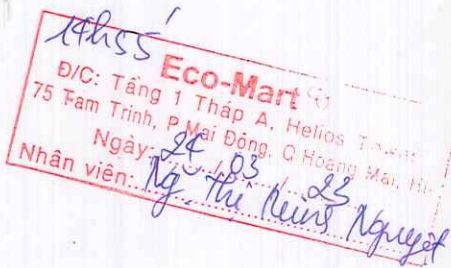 14h55'
Eco-Mart
Đ/C: Tầng 1 Tháp A, Helios
75 Tam Trinh, P Mai Động, Q Hoàng Mai,
Ngày: 24 / 03 / 23
Nhân viên: Ng Thị Nguyệt